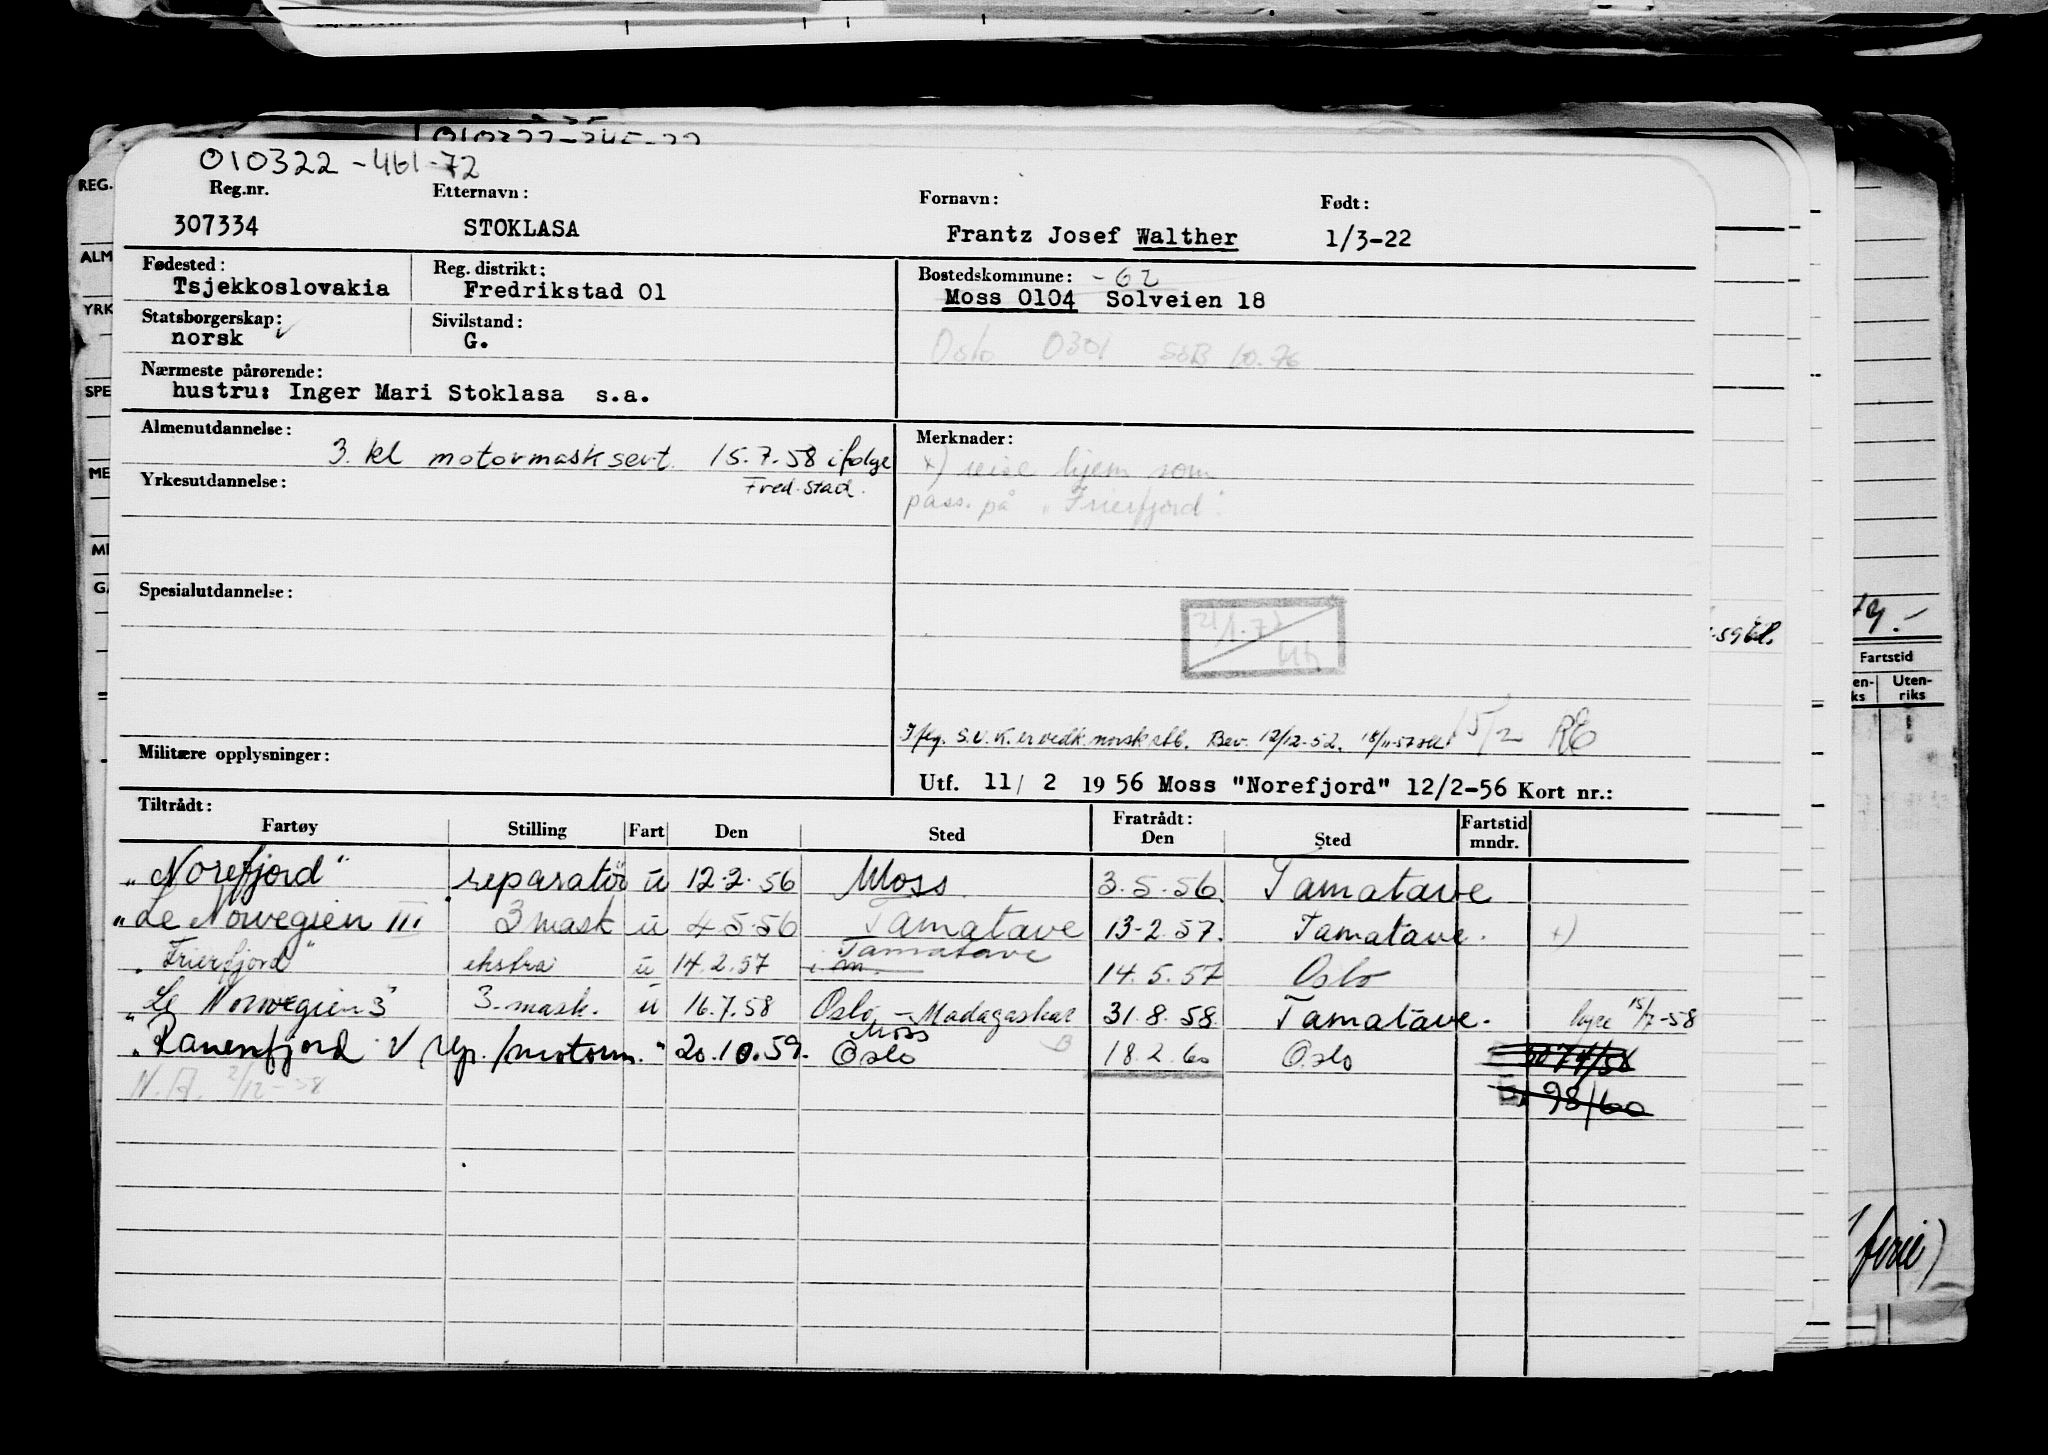 010322-461-72
Reg.nr. Etternavn: Fornavn: Født:
307334 STOKLASA Frantz Josef Walther 1/3-22
Fødested: Reg. distrikt: Bostedskommune: -62
Tsjekkoslovakia Fredrikstad 01 Moss 0104 Solveien 18
Statsborgerskap: Sivilstand:
norsk G. Oslo 0301 SSB 10.76
Nærmeste pårørende:
hustru: Inger Mari Stoklasa s.a.
Almenutdannelse: Merknader:
3. kl motormasksert. 15.7.58 ifølge
Fred.stad.
+) reise hjem som
pass. på "Frierfjord".
Yrkesutdannelse:
Spesialutdannelse:
21/1.72
Iføg. S.U.K. er vedk. norsk stb. Bev. 12/12-52. 18/11-57 15/2 RE
Militære opplysninger:
Utf. 11/ 2 1956 Moss "Norefjord" 12/2-56 Kort nr.:
Tiltrådt: Fratrådt: Fartstid
Fartøy Stilling Fart Den Sted Den Sted mndr.
"Norefjord" reparatør u 12.2.56 Moss 3.5.56. Tamatave
"Le Norvegien III 3 mask u 4-5-56 Tamatave 13-2.57. Tamatave. +)
"Frierfjord" ekstra u 14.2.57 Tamatave 14.5.57 Oslo
"Le Norvegien 3" 3.mask. u 16.7.58 Oslo - Madagaskar 31.8.58. Tamatave. 15/7-58
"Ranenfjord" rep./motorm. 20.10.59. Moss Oslo 18.2.60 Oslo
N.A. 2/12-58
98/60
REG.
ALM
YRK
SPE
ME
MI
Fartstid
Uten-
riks